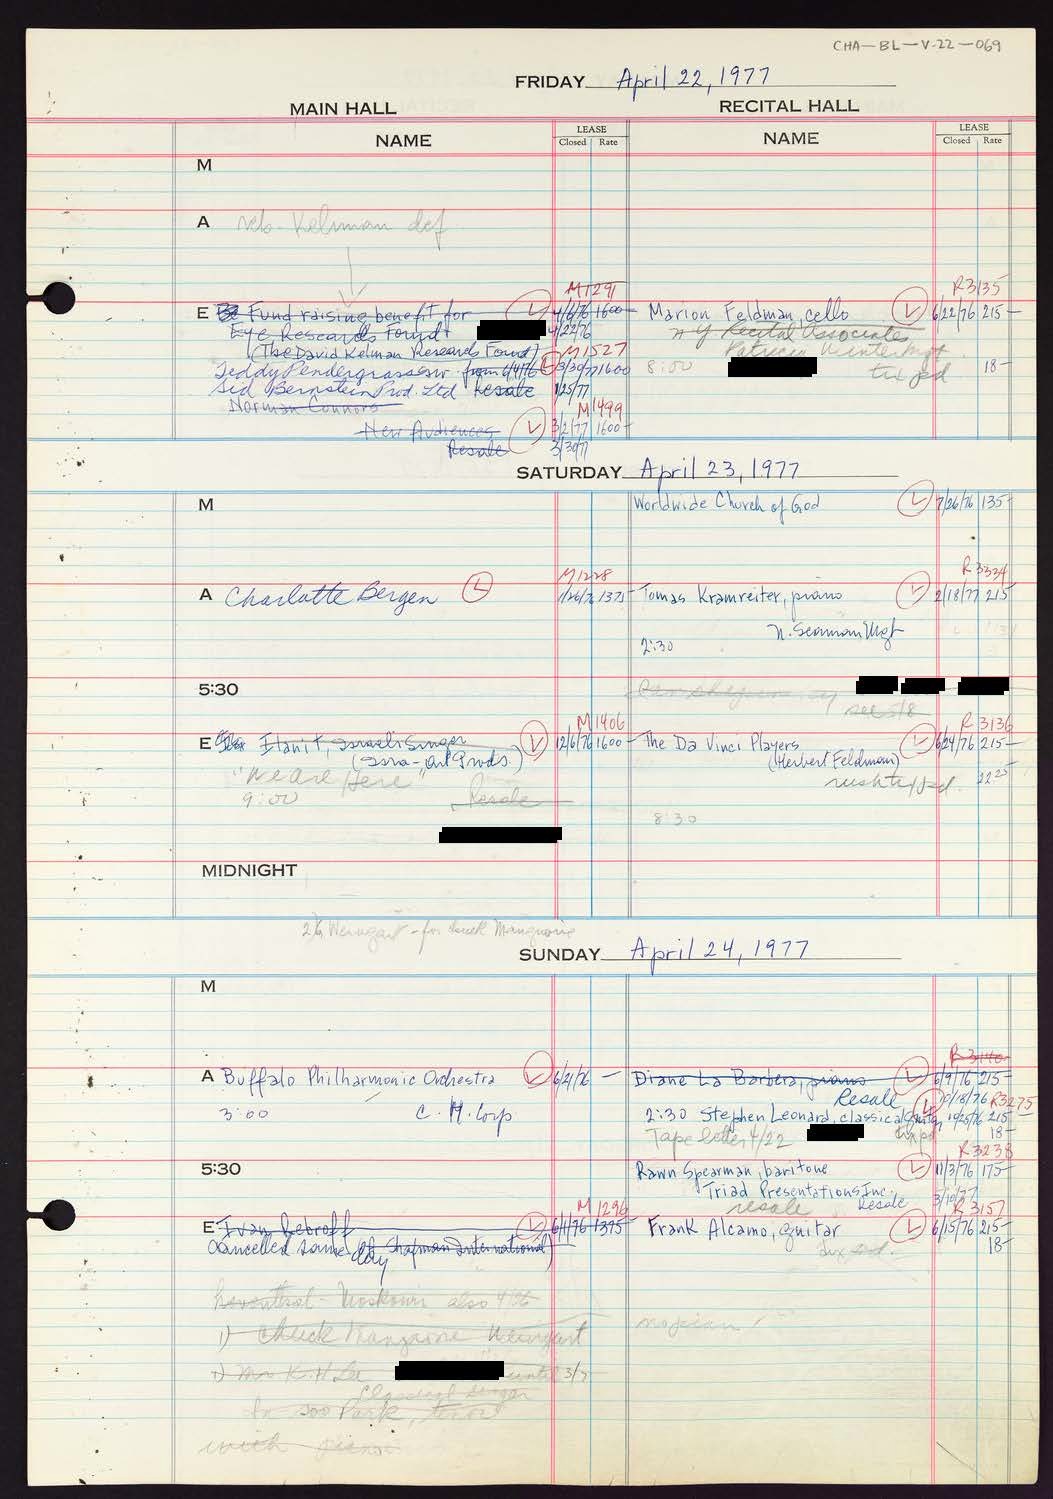 CHA-BL-V-22-069
FRIDAY April 22, 1977
MAIN HALL
RECITAL HALL
NAME
LEASE
Closed Rate
NAME
LEASE
Closed Rate
M
A Kelman def
M1291
R3135
E Fund raising benefit for L 4/6/76 1600-
Marion Feldman, cello L 6/22/76 215-
Eye Research Found. 4/22/76
N Y Recital Associates
(The David Kelman Research Found)
M1527
Patricia Winter Mgt
Teddy Pendergrass L 3/30/77 1600
8:00
tix pd 18-
Sid Bernstein Prod. Ltd Resale 1/25/77
Norman Connors
M1499
New Audiences L 3/2/77 1600-
Resale 3/30/77
SATURDAY April 23, 1977
M
Worldwide Church of God L 7/26/76 135-
M1228
R3334
A Charlotte Bergen L 1/26/76 1375-
Tomas Kramreiter, piano L 2/18/77 215
N. Seaman Mgt
2:30
5:30
see 5/8
M1406
R3136
E Ilanit, Israeli Singer L 12/6/76 1600-
The Da Vinci Players L 6/24/76 215-
(Isra-Art Prods.)
(Herbert Feldman)
"We Are Here"
9:00
Resale
8:30
MIDNIGHT
Weingart - for Chuck Mangione
SUNDAY April 24, 1977
M
R3140
A Buffalo Philharmonic Orchestra L 6/2/76 -
Diane La Barbera, piano L 6/9/76 215-
Resale L 10/18/76 R3275
3:00 C. H. Corp
2:30 Stephen Leonard, classical guitar 10/25/76 215-
Tape letter 4/22
tix pd 18-
R3238
5:30
Rawn Spearman, baritone L 11/3/76 175-
Triad Presentations Inc. Resale 3/10/77
resale
M1296
R3157
E Ivan Rebroff L 6/1/76 1375-
Frank Alcamo, guitar L 6/15/76 215-
Cancelled same day (Chapman International)
18-
also 4/26
1) check Mangione Weingart
2) Mr K. H. Lee until 3/7
Classical Singer
Soo Park, tenor
with piano